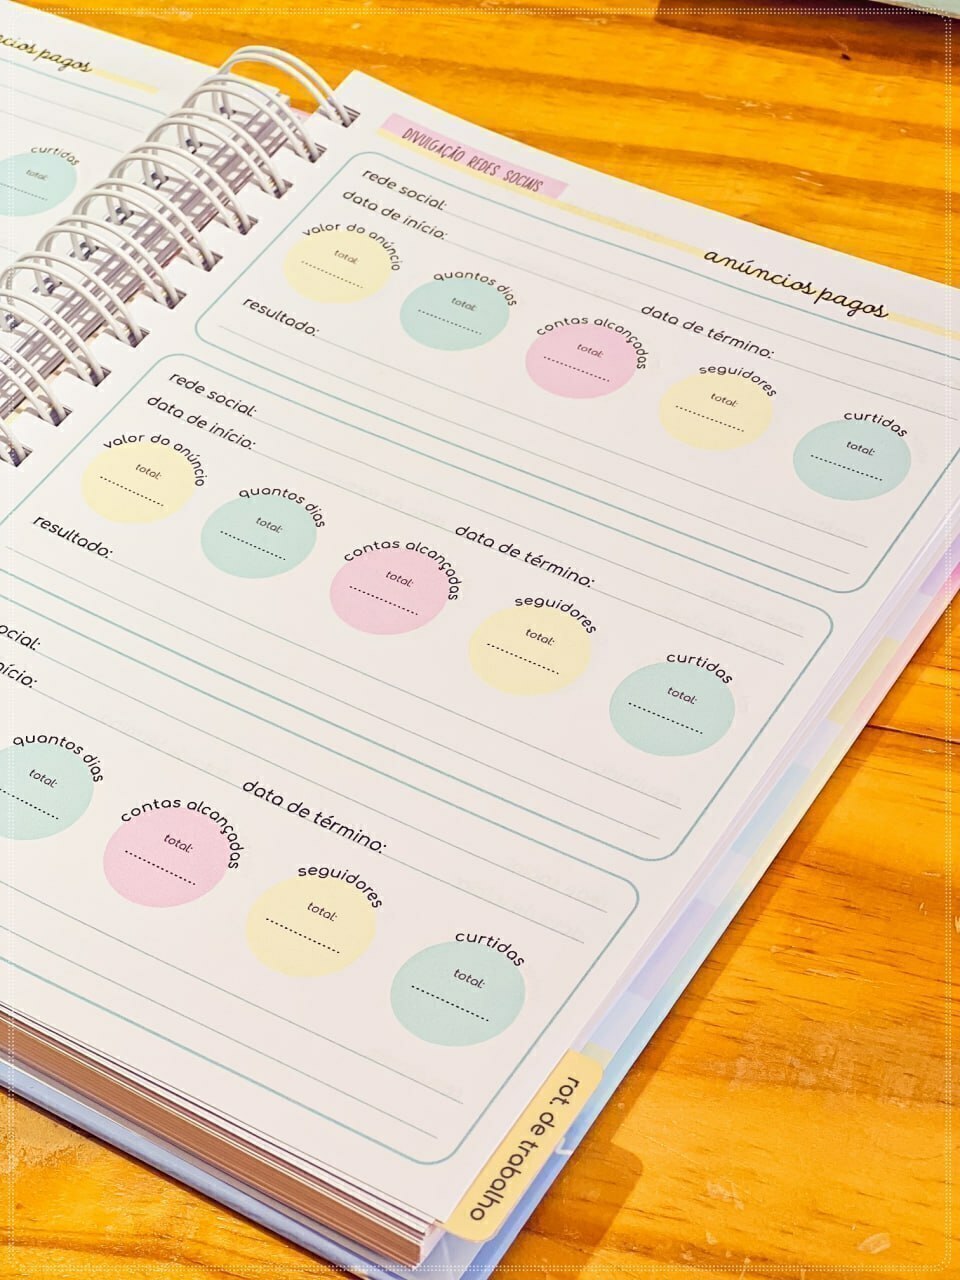 anúncios pagos
curtidas
total:
DIVULGAÇÃO REDES SOCIAIS
anúncios pagos
rede social:
data de início:
data de término:
valor do anúncio
total:
quantos dias
total:
contas alcançadas
total:
seguidores
total:
curtidas
total:
resultado:
rede social:
data de início:
data de término:
valor do anúncio
total:
quantos dias
total:
contas alcançadas
total:
seguidores
total:
curtidas
total:
resultado:
social:
início:
data de término:
quantos dias
total:
contas alcançadas
total:
seguidores
total:
curtidas
total:
rot. de trabalho